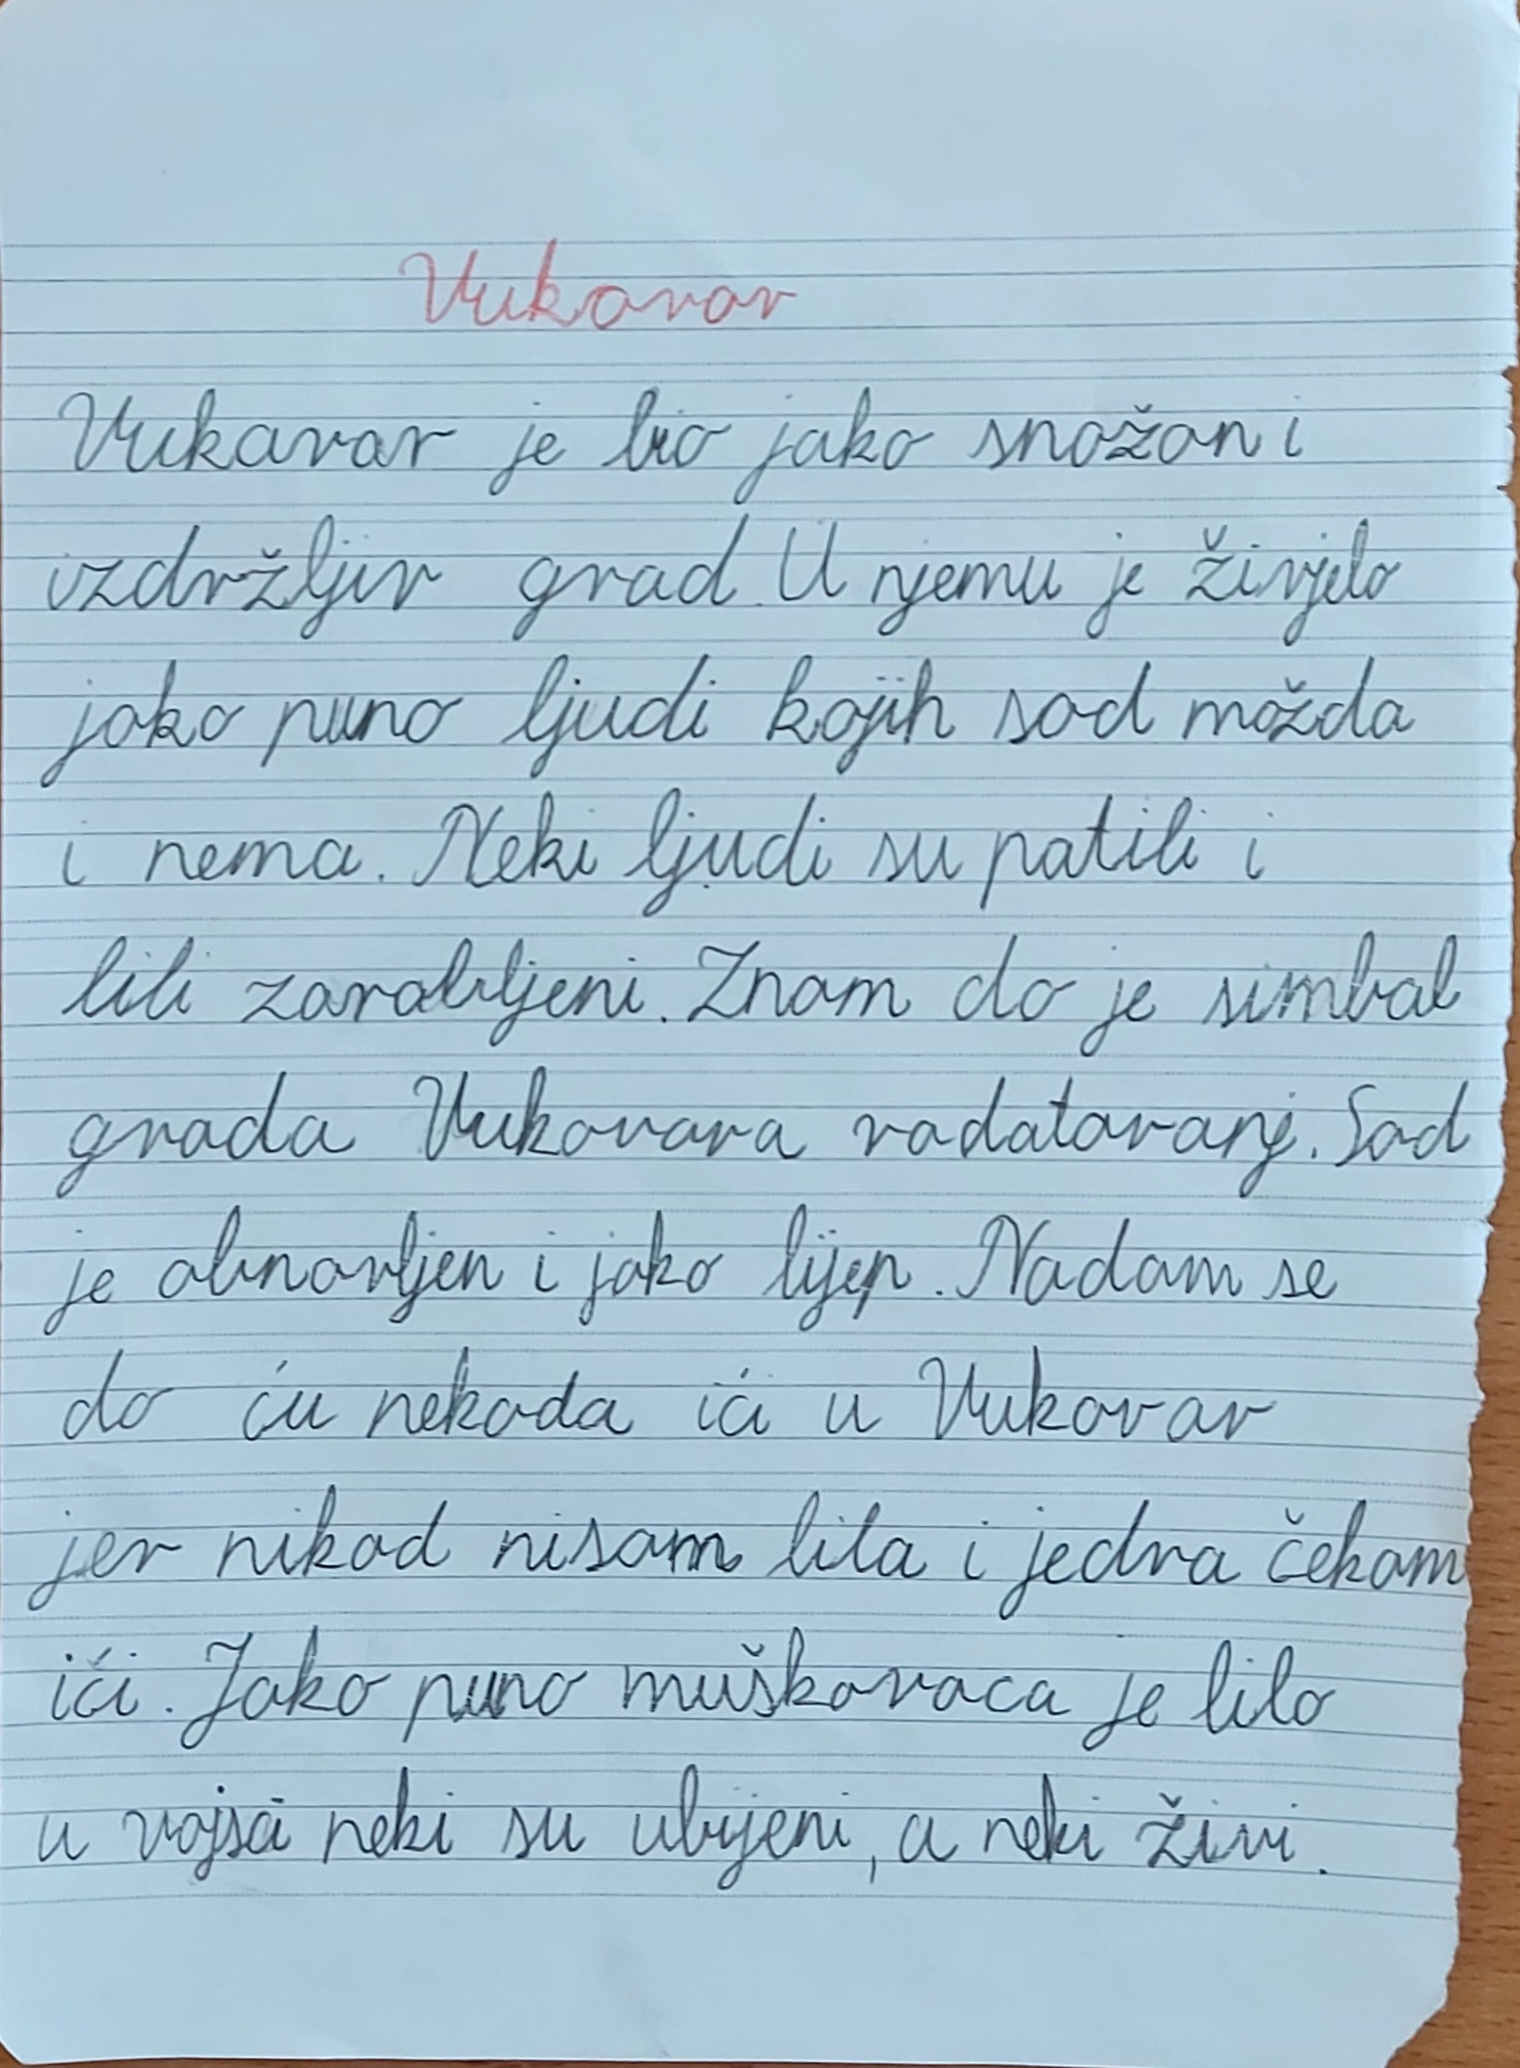 Vukovar
Vukovar je bio jako snažan i
izdržljiv grad. U njemu je živjelo
jako puno ljudi kojih sad možda
i nema. Neki ljudi su patili i
bili zarobljeni. Znam da je simbol
grada Vukovara vodotoranj. Sad
je obnovljen i jako lijep. Nadam se
da ću nekada ići u Vukovar
jer nikad nisam bila i jedva čekam
ići. Jako puno muškaraca je bilo
u vojsci neki su ubijeni, a neki živi.